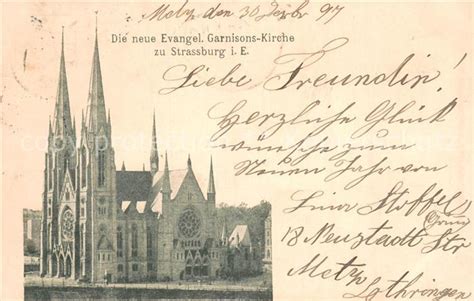 Metz den 30 Dezbr 97
Die neue Evangel. Garnisons-Kirche
zu Strassburg i. E.
Liebe Freundin!
Herzliche Glück
wünsche zum
Neuen Jahr von
Lina Stoffel
18 Neustadt Str
Metz
Lothringen